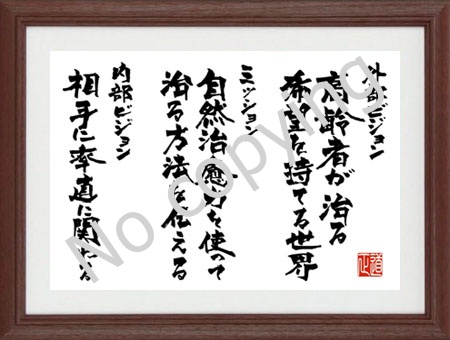 外部ビジョン
高齢者が治る
希望を持てる世界
ミッション
自然治癒力を使って
治る方法を伝える
内部ビジョン
相手に率直に関わる
No copying